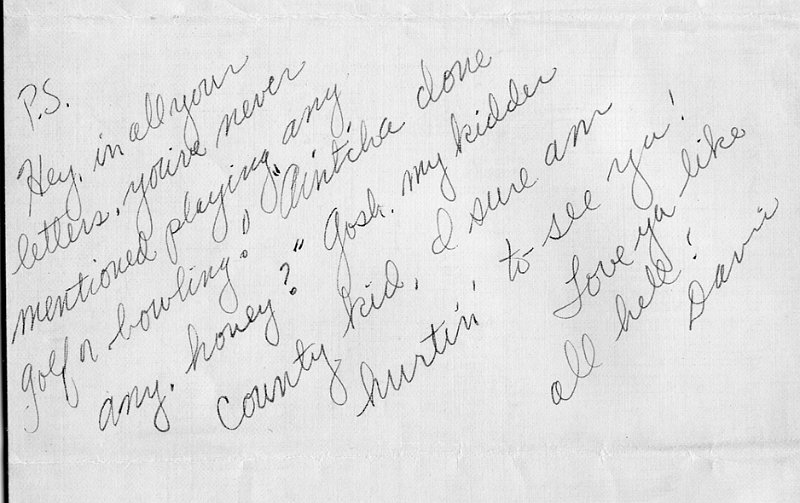 P.S.
Hey, in all your
letters, you've never
mentioned playing any
golf or bowling! "Aint'cha done
any, honey?" Gosh, my kidder
county kid, I sure am
hurtin' to see ya!
Love ya like
all hell!
Davie